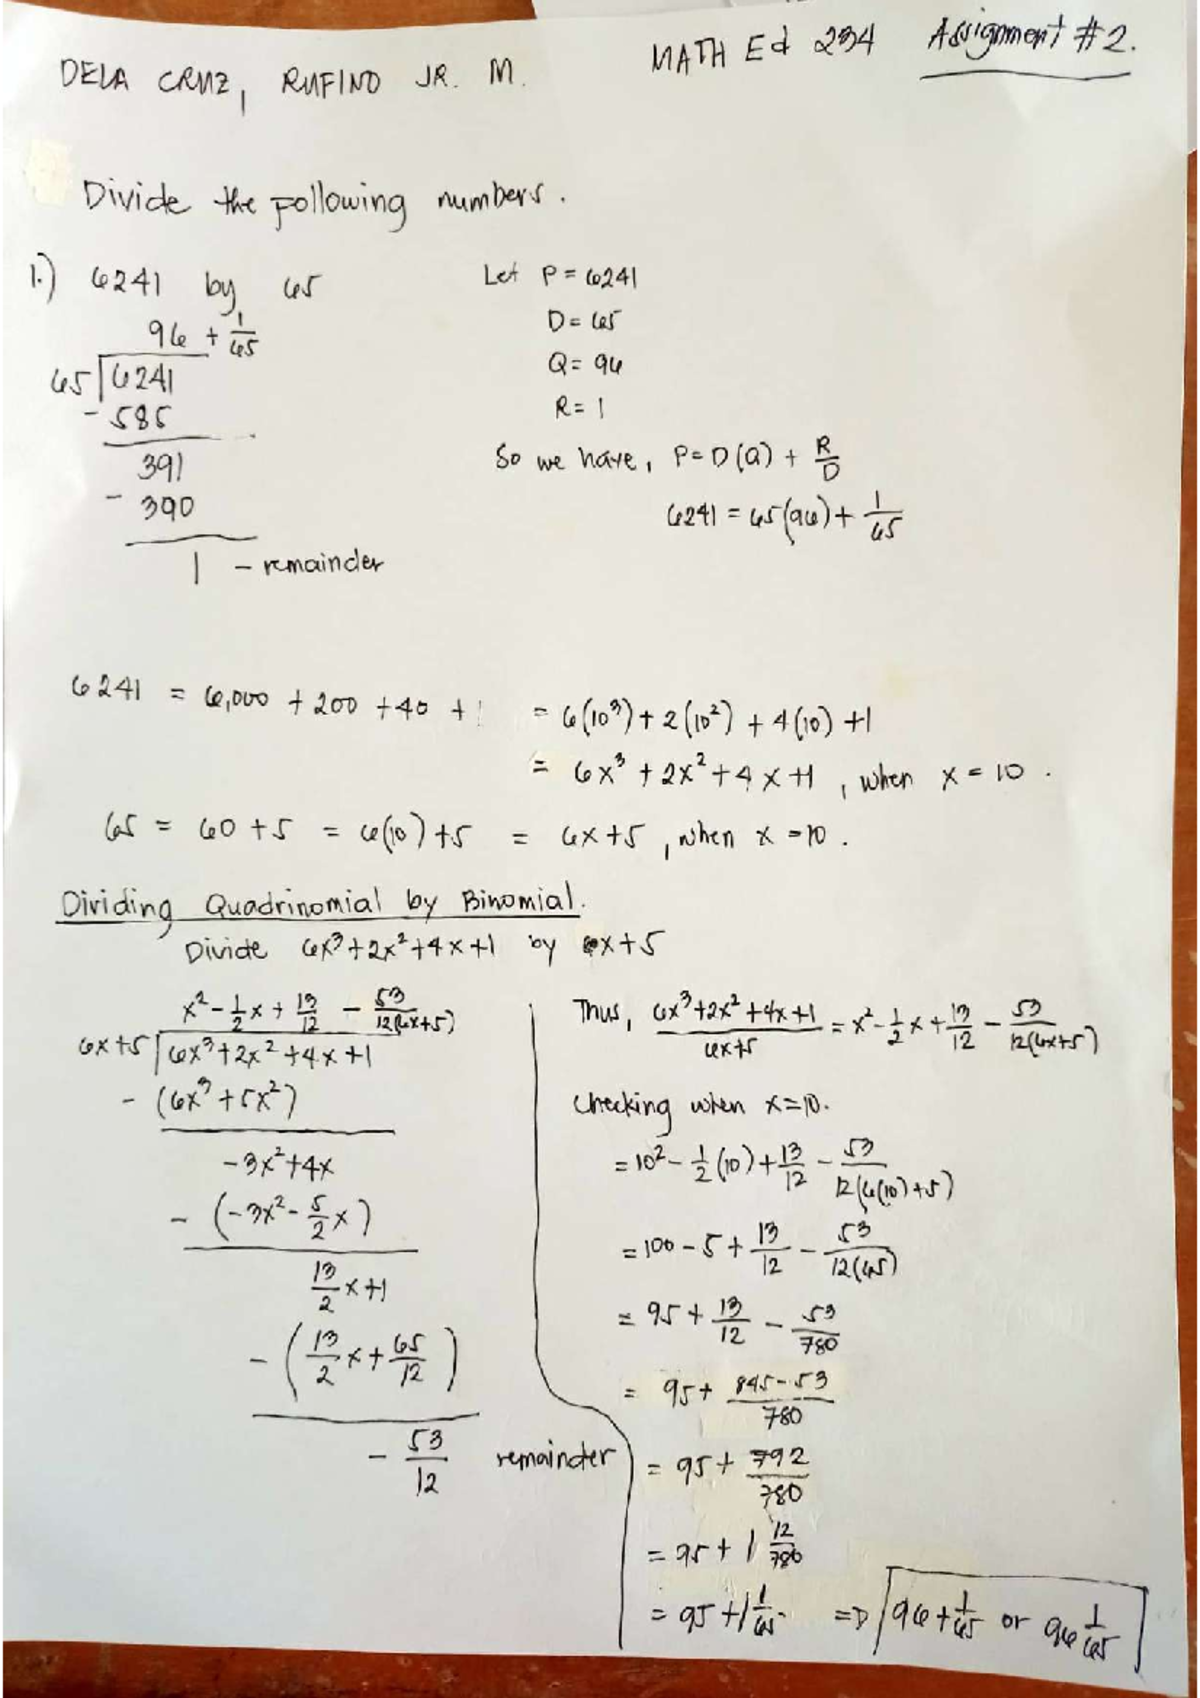 DELA CRUZ, RUFINO JR. M. MATH Ed 234 Assignment #2.
Divide the following numbers.
1.) 6241 by 65
96 + 1/65
65 | 6241
- 585
391
- 390
1 - remainder
Let P = 6241
D = 65
Q = 96
R = 1
So we have, P = D(Q) + R/D
6241 = 65(96) + 1/65
6241 = 6,000 + 200 + 40 + 1 = 6(10³) + 2(10²) + 4(10) + 1
= 6x³ + 2x² + 4x + 1, when x = 10.
65 = 60 + 5 = 6(10) + 5 = 6x + 5, when x = 10.
Dividing Quadrinomial by Binomial.
Divide 6x³ + 2x² + 4x + 1 by 6x + 5
x² - 1/2 x + 13/12 - 53/12(6x+5)
6x+5 | 6x³ + 2x² + 4x + 1
- (6x³ + 5x²)
-3x² + 4x
- (-3x² - 5/2 x)
13/2 x + 1
- (13/2 x + 65/12)
- 53/12 remainder
Thus, 6x³+2x²+4x+1/6x+5 = x² - 1/2 x + 13/12 - 53/12(6x+5)
Checking when x=10.
= 10² - 1/2 (10) + 13/12 - 53/12(6(10)+5)
= 100 - 5 + 13/12 - 53/12(65)
= 95 + 13/12 - 53/780
= 95 + 845-53/780
= 95 + 792/780
= 95 + 1 12/780
= 95 + 1 1/65 => 96 + 1/65 or 96 1/65